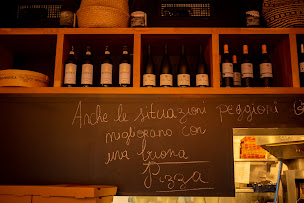 Anche le situazioni peggiori
migliorano con
una buona
Pizza